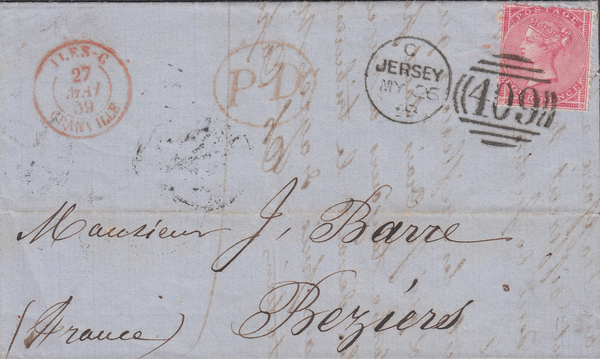 ILES-C
27
MAI
59
GRANVILLE
P·D·
C
JERSEY
MY 26
59
POSTAGE
409
Monsieur J. Barre
Beziérs
(France)